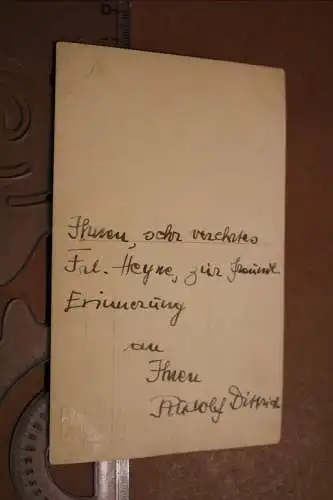 Ihnen, sehr verehrtes
Frl. Heyne, zur freundl.
Erinnerung
an
Ihnen
Rudolf Dittrich